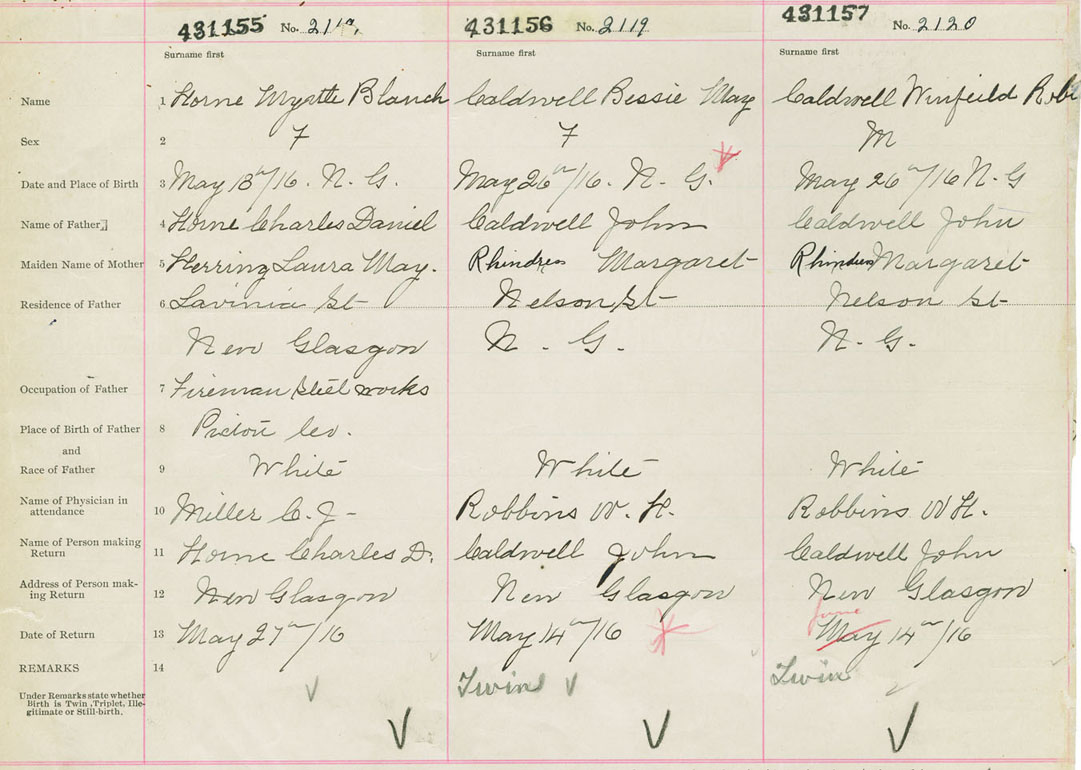 431155 No. 2118 431156 No. 2119 431157 No. 2120
Surname first Surname first Surname first
Name 1 Horne Myrtle Blanch Caldwell Bessie May Caldwell Winfield Robi
Sex 2 F F M
Date and Place of Birth 3 May 13th/16. N. G. May 26th/16. N. G. May 26th/16 N. G
Name of Father 4 Horne Charles Daniel Caldwell John Caldwell John
Maiden Name of Mother 5 Herring Laura May. Rhindress Margaret Rhindress Margaret
Residence of Father 6 Lavinia St Nelson St Nelson St
New Glasgow N. G. N. G.
Occupation of Father 7 Fireman Steel works
Place of Birth of Father 8 Pictou Co.
and
Race of Father 9 White White White
Name of Physician in
attendance 10 Miller C. J- Robbins W. H. Robbins W H.
Name of Person making
Return 11 Horne Charles D. Caldwell John Caldwell John
Address of Person mak-
ing Return 12 New Glasgow New Glasgow New Glasgow
June
Date of Return 13 May 27th/16 May 14th/16 May 14th/16
REMARKS 14
Twin Twin
Under Remarks state whether
Birth is Twin, Triplet, Ille-
gitimate or Still-birth.